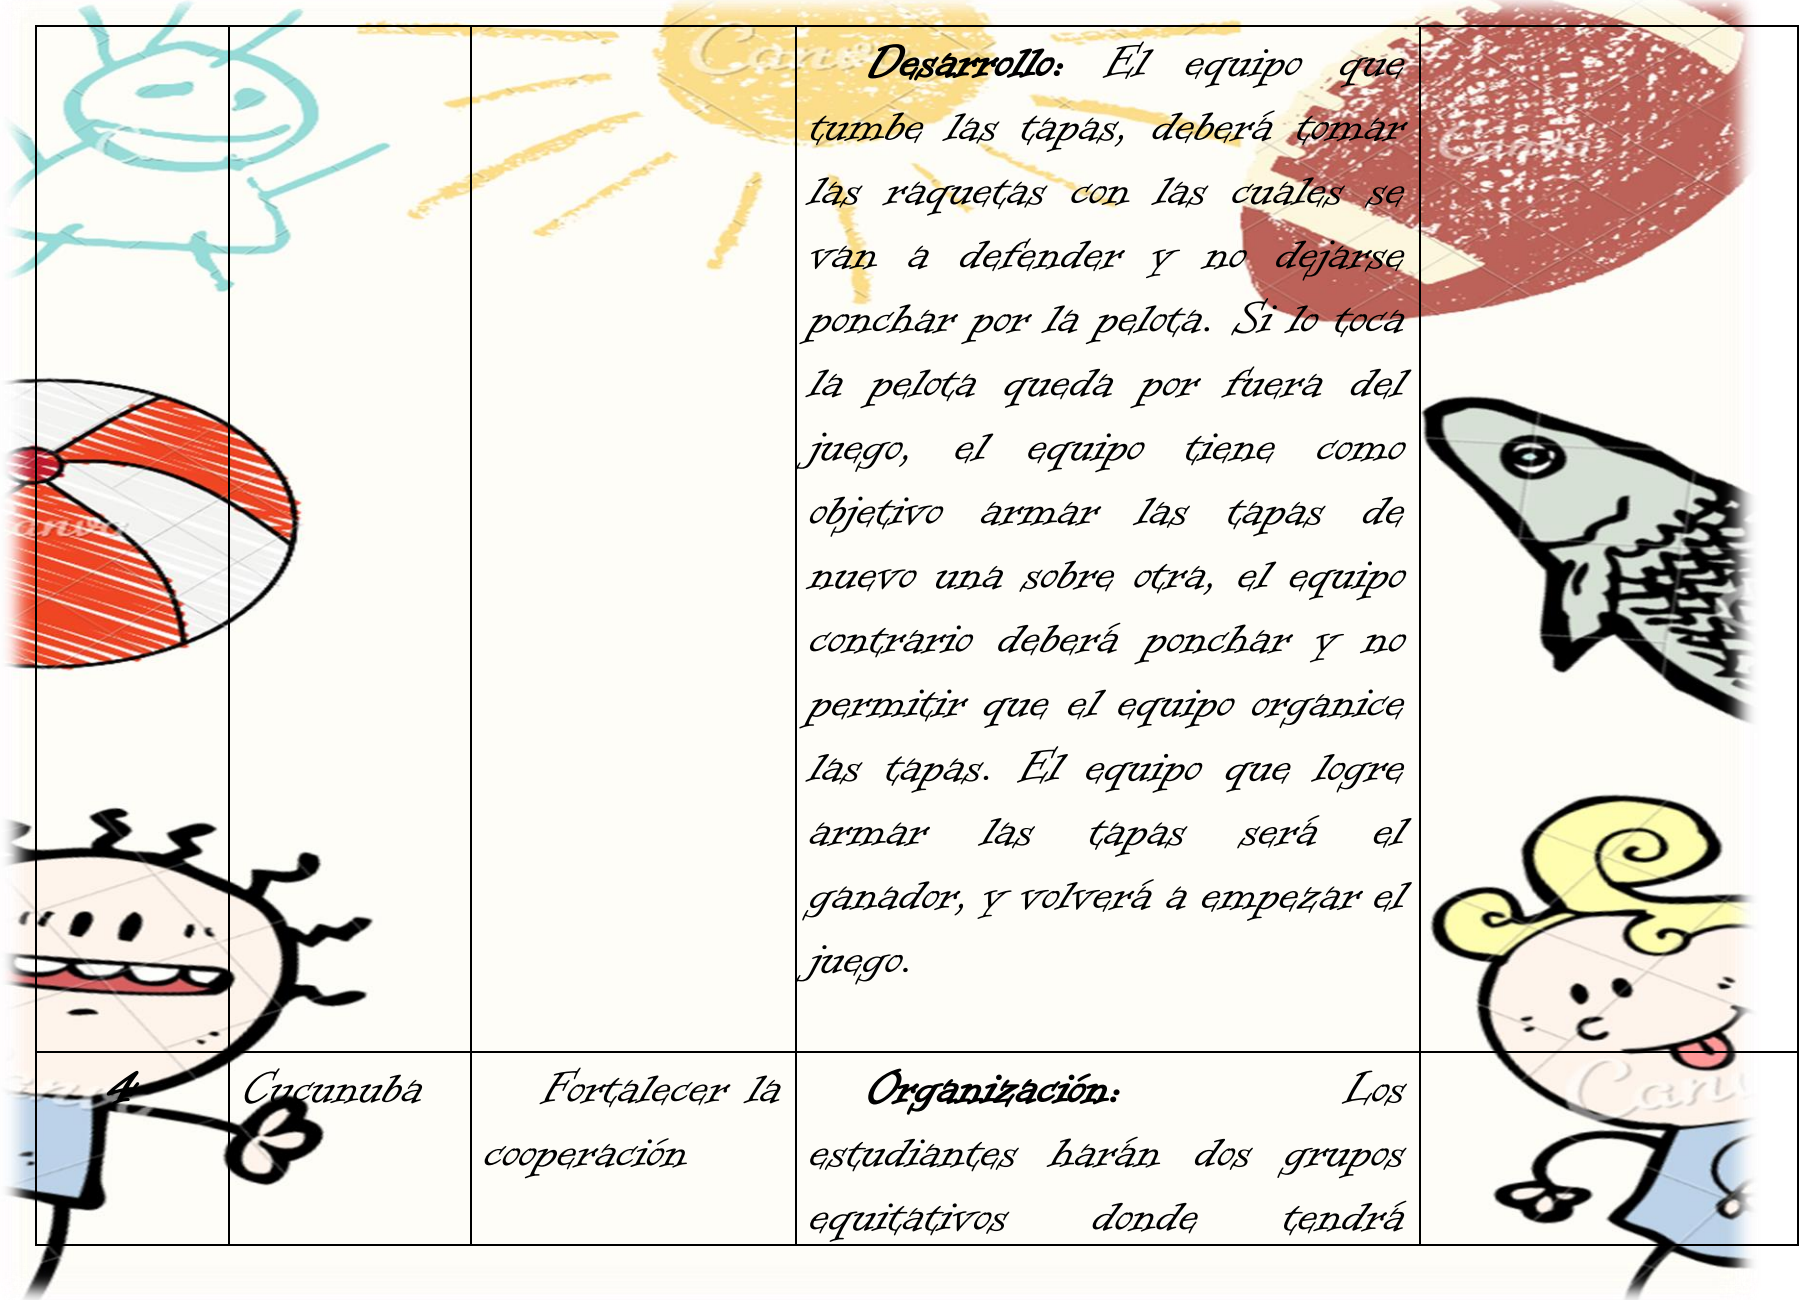 Desarrollo: El equipo que
tumbe las tapas, deberá tomar
las raquetas con las cuales se
van a defender y no dejarse
ponchar por la pelota. Si lo toca
la pelota queda por fuera del
juego, el equipo tiene como
objetivo armar las tapas de
nuevo una sobre otra, el equipo
contrario deberá ponchar y no
permitir que el equipo organice
las tapas. El equipo que logre
armar las tapas será el
ganador, y volverá a empezar el
juego.
4
Cucunuba
Fortalecer la
cooperación
Organización: Los
estudiantes harán dos grupos
equitativos donde tendrá